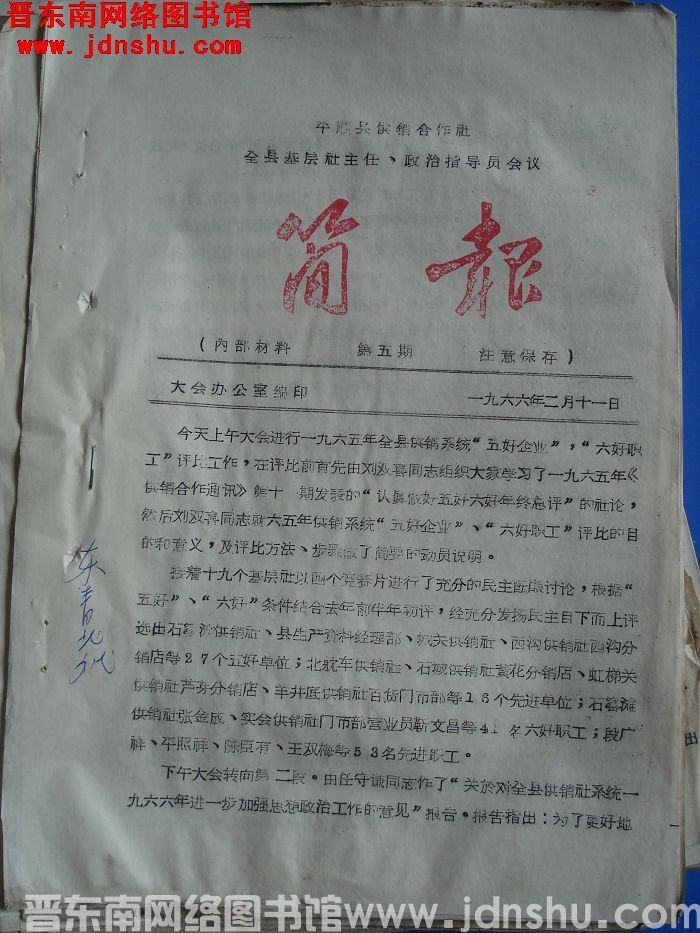 晋东南网络图书馆
www.jdnshu.com
平顺县供销合作社
全县基层社主任、政治指导员会议
简报
（内部材料 第五期 注意保存）
大会办公室编印 一九六六年二月十一日
今天上午大会进行一九六五年全县供销系统“五好企业”，“六好职
工”评比工作，在评比前首先由刘双喜同志组织大家学习了一九六五年《
供销合作通讯》第十一期发表的“认真做好五好六好年终总评”的社论，
然后刘双喜同志就六五年供销系统“五好企业”、“六好职工”评比的目
的和意义，及评比方法、步骤做了简要的动员说明。
接着十九个基层社以四个竞赛片进行了充分的民主酝酿讨论，根据“
五好”、“六好”条件结合去年前半年初评，经充分发扬民主自下而上评
选出石窑滩供销社、县生产资料经理部、城关供销社、西沟供销社西沟分
销店等27个五好单位；北耽车供销社、石城供销社黄花分销店、虹梯关
供销社芦芽分销店、羊井底供销社百货门市部等16个先进单位；石窑滩
供销社张金成、实会供销社门市部营业员靳文昌等41名六好职工；段广
祥、平照祥、陈臣有、王双梅等53名先进职工。
下午大会转向第二段。由任守谦同志作了“关於对全县供销社系统一
九六六年进一步加强思想政治工作的意见”报告。报告指出：为了更好地
出
晋东南网络图书馆 www.jdnshu.com